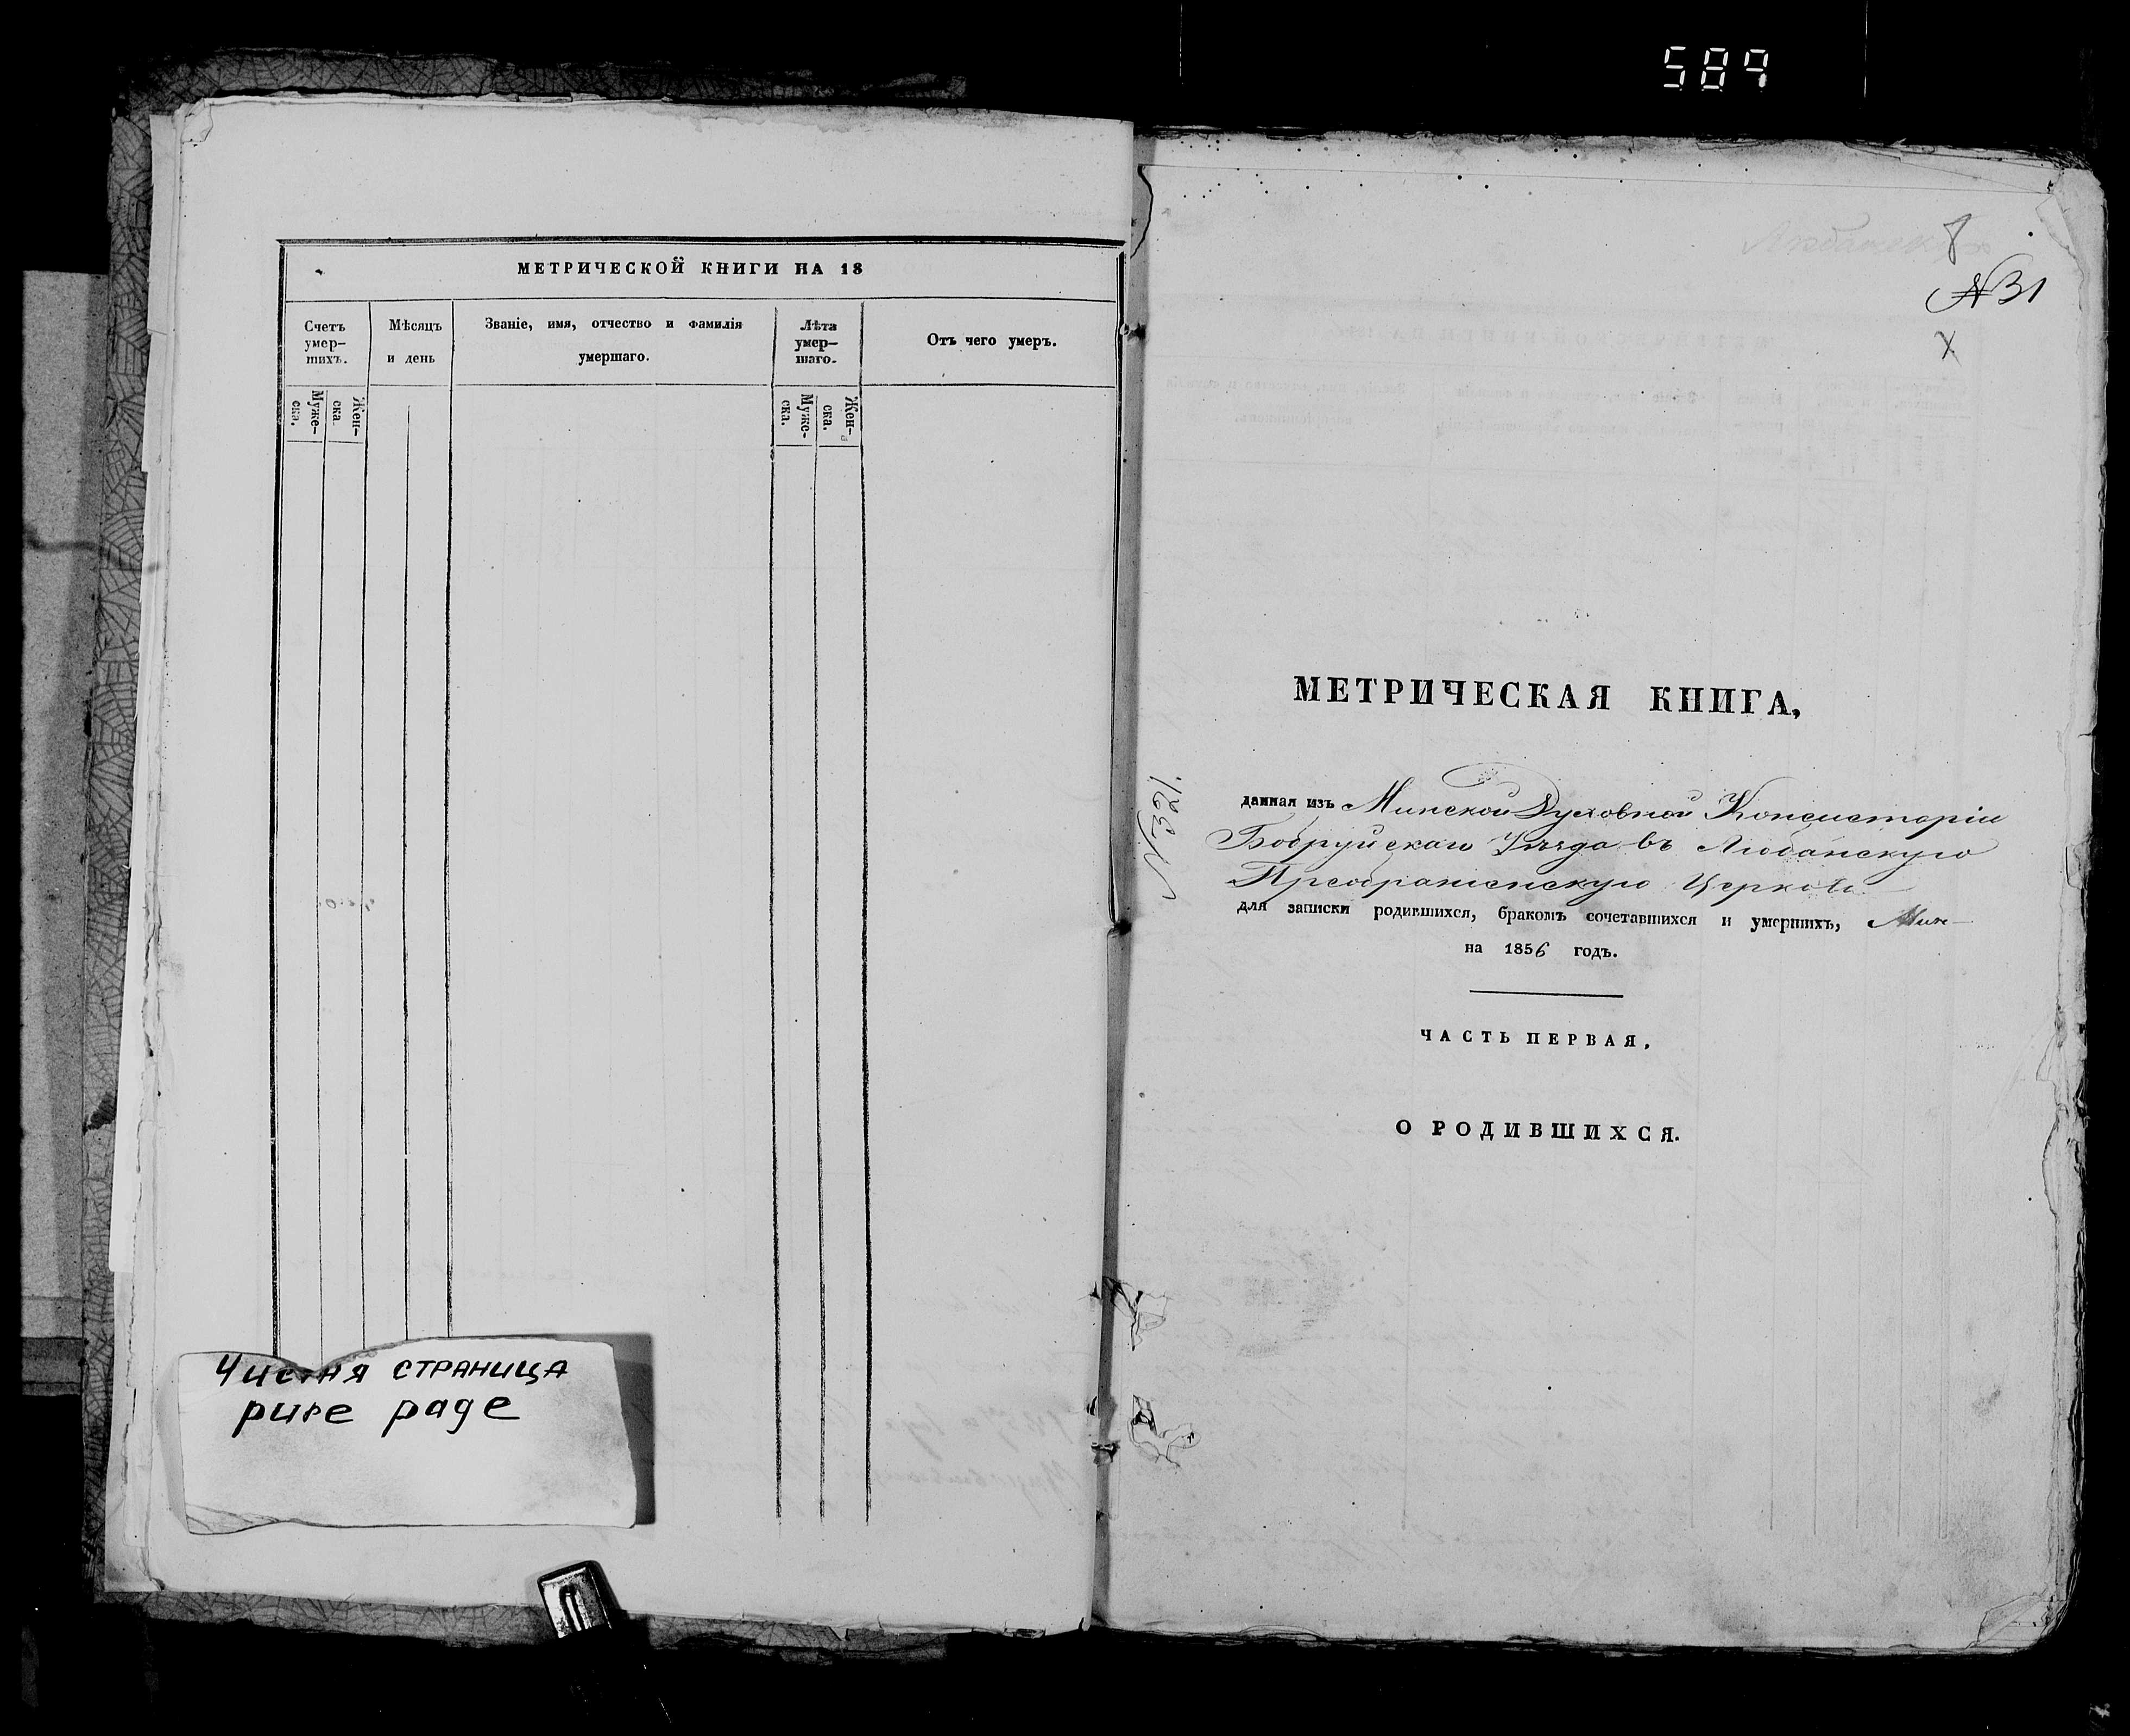 589
МЕТРИЧЕСКОЙ КНИГИ НА 18
Счетъ умер-тихъ.
Мѣсяцъ и день
Званіе, имя, отчество и фамилія умершаго.
Лѣта умер-шаго.
Отъ чего умеръ.
Муже-ска.
Жен-ска.
Муже-ска.
Жен-ска.
Чистая страница
pure page
8
№31
X
МЕТРИЧЕСКАЯ КНИГА,
№ 321.
данная изъ Минской Духовной Консисторіи
Бобруйскаго Уѣзда въ Любанскую
Преображенскую Церковь
для записки родившихся, бракомъ сочетавшихся и умершихъ,
на 1856 годъ.
ЧАСТЬ ПЕРВАЯ,
О РОДИВШИХСЯ.